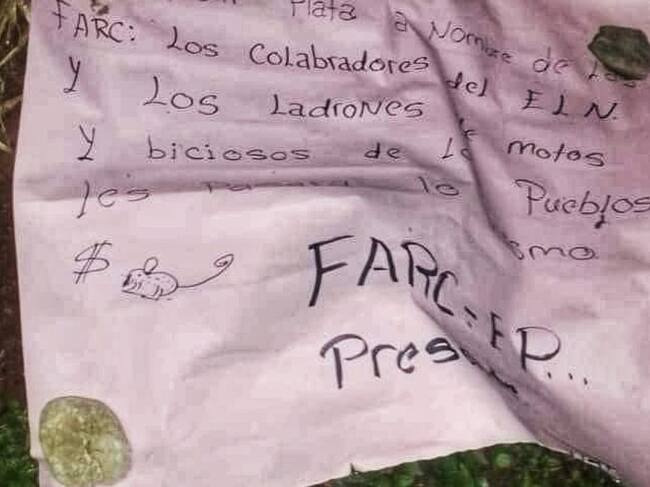 Plata a Nombre de Las
FARC: Los Colabradores del E L N.
Y Los Ladrones
Y biciosos de motos
les lo Pueblos
$
FARC-EP...